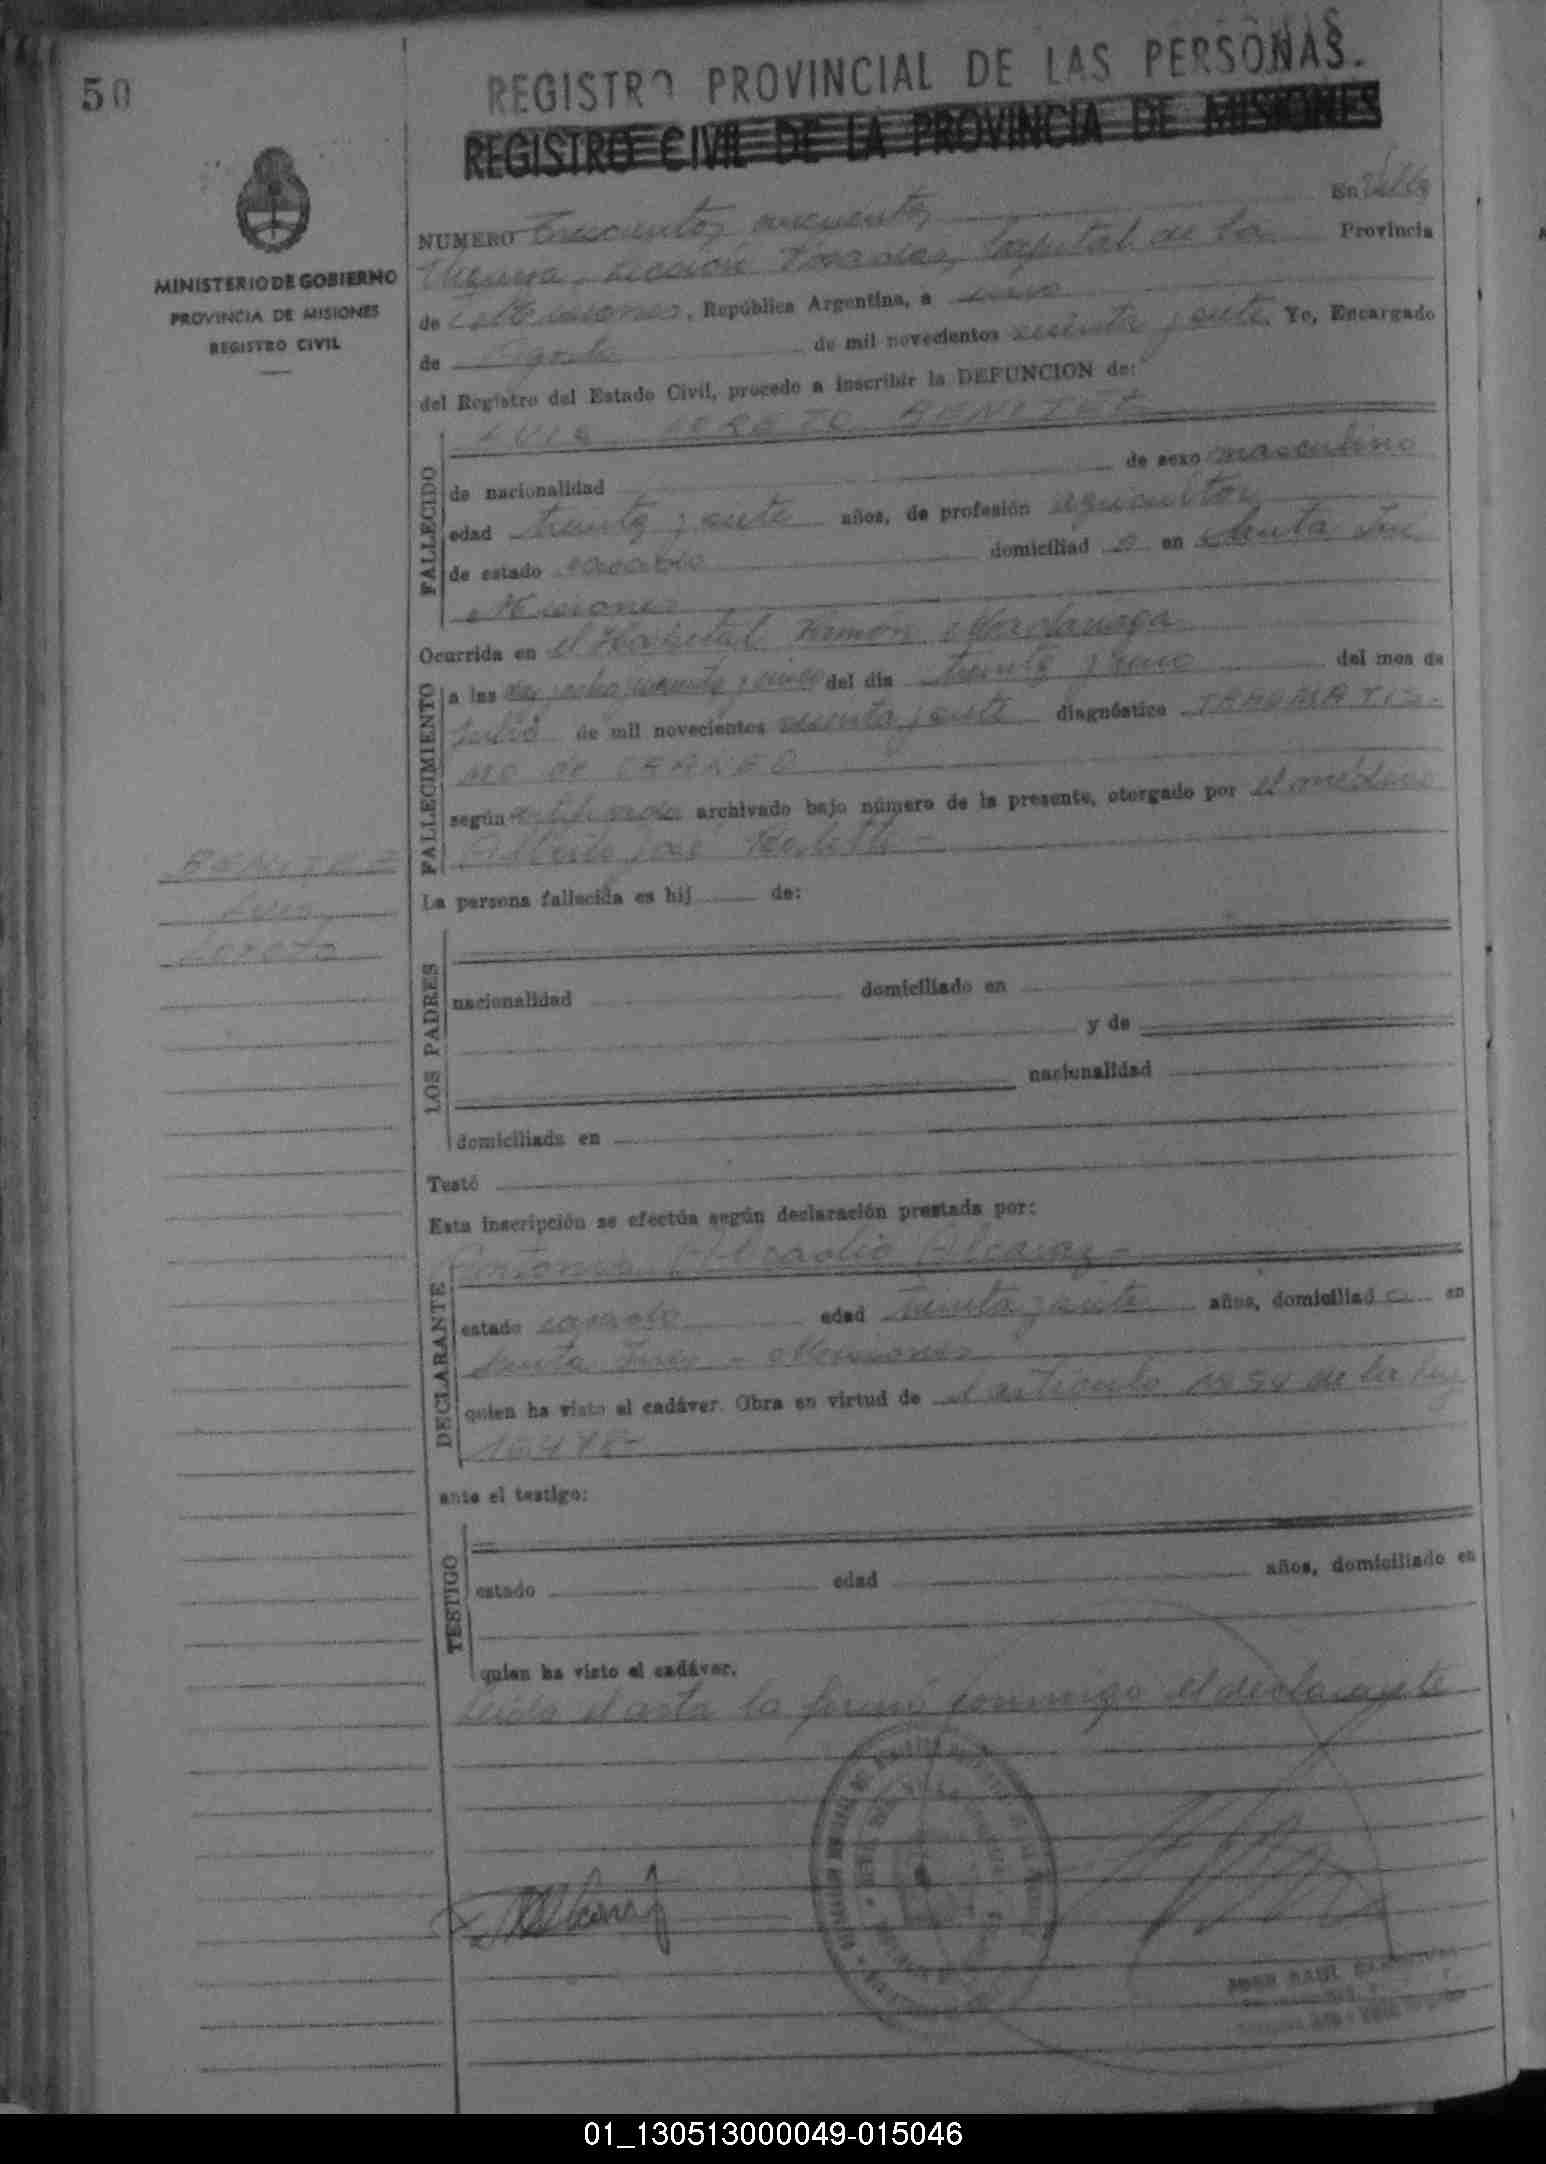 50
REGISTRO PROVINCIAL DE LAS PERSONAS.
REGISTRO CIVIL DE LA PROVINCIA DE MISIONES
MINISTERIO DE GOBIERNO
PROVINCIA DE MISIONES
REGISTRO CIVIL
NUMERO Trescientos cincuenta En Villa
Urquiza, sección Posadas, Capital de la Provincia
de Misiones, República Argentina, a uno
de Agosto de mil novecientos sesenta y siete. Yo, Encargado
del Registro del Estado Civil, procedo a inscribir la DEFUNCION de:
LUIS LORETO BENITEZ
FALLECIDO
de nacionalidad de sexo masculino
edad treinta y siete años, de profesión agricultor
de estado casado domiciliad o en Santa Inés
Misiones
Ocurrida en el Hospital Ramón Madariaga
FALLECIMIENTO
a las cinco del dia treinta y uno del mes de
Julio de mil novecientos sesenta y siete diagnóstico TRAUMATIS-
MO DE CRANEO
según certificado archivado bajo número de la presente, otorgado por el médico
Alberto José
BENITEZ
Luis
Loreto
La persona fallecida es hij de:
LOS PADRES
nacionalidad domiciliado en
y de
nacionalidad
domiciliada en
Testó
Esta inscripción se efectúa según declaración prestada por:
DECLARANTE
Antonio Alcaraz
estado casado edad treinta y siete años, domiciliad o en
Santa Inés - Misiones
quien ha visto el cadáver. Obra en virtud de el artículo de la ley
ante el testigo:
TESTIGO
estado edad años, domiciliado en
quien ha visto el cadáver.
Leída el acta la firmó conmigo el declarante
01_130513000049-015046